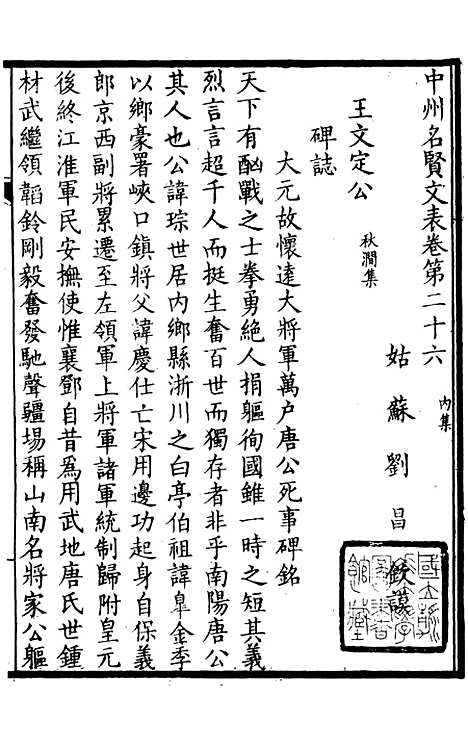 中州名賢文表卷第二十六 內集
姑蘇劉昌欽謨
王文定公 秋澗集
碑誌
大元故懷遠大將軍萬户唐公死事碑銘
天下有酗戰之士拳勇絕人捐軀徇國錐一時之短其義
烈言言超千人而挺生奮百世而獨存者非乎南陽唐公
其人也公諱琮世居內鄉縣浙川之白亭伯祖諱皐金季
以鄉豪署峽口鎮將父諱慶仕亡宋用邊功起身自保義
郎京西副將累遷至左領軍上將軍諸軍統制歸附皇元
後終江淮軍民安撫使惟襄鄧自昔爲用武地唐氏世鍾
材武繼領韜鈴剛毅奮發馳聲疆場稱山南名將家公軀